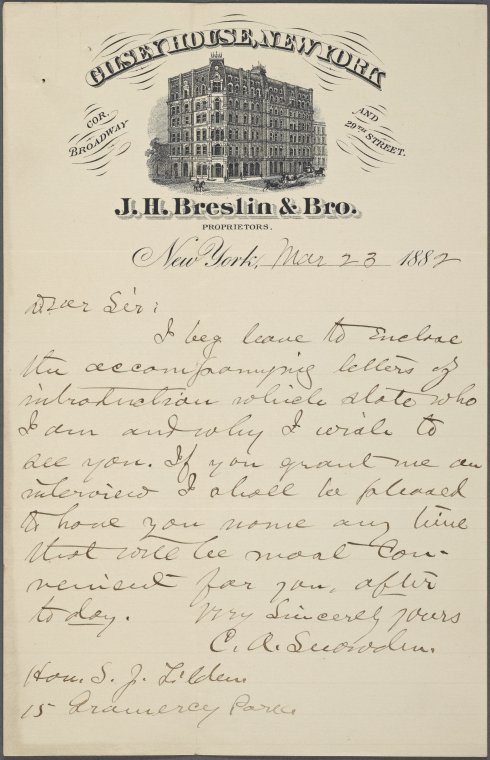 GILSEY HOUSE, NEW YORK
COR. BROADWAY
AND 29TH STREET.
J. H. Breslin & Bro.
PROPRIETORS.
New York, Mar 23 1882
Dear Sir:
I beg leave to enclose
the accompanying letters of
introduction which state who
I am and why I wish to
see you. If you grant me an
interview I shall be pleased
to have you name any time
that will be most con-
venient for you, after
to day. Very Sincerely yours
C. A. Snowden.
Hon. S. J. Tilden
15 Gramercy Park